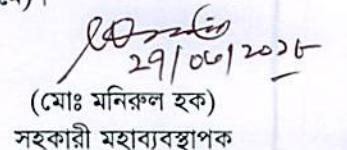 29/06/2025
(মোঃ মনিরুল হক)
সহকারী মহাব্যবস্থাপক